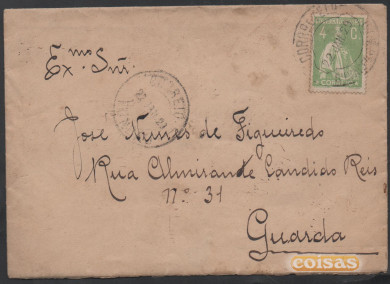 Ex.mo Snr.
José Nunes de Figueiredo
Rua Almirande Candido Reis
n.º 31
Guarda
4 C.
coisas